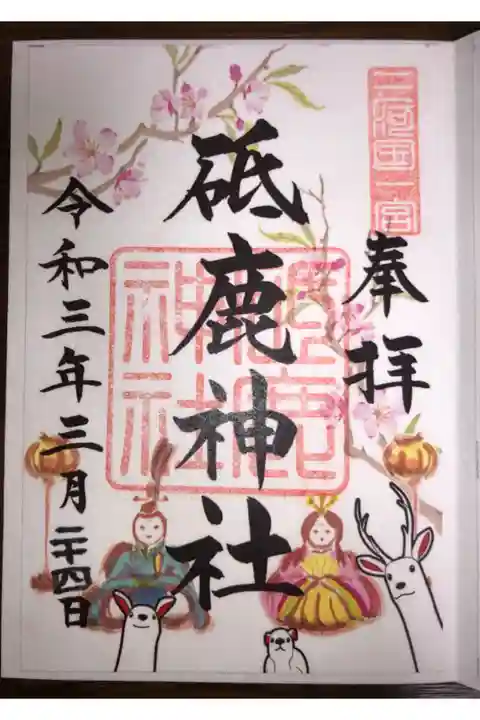 三河国一宮
奉拝
砥鹿神社
砥鹿
神社
令和三年三月二十四日